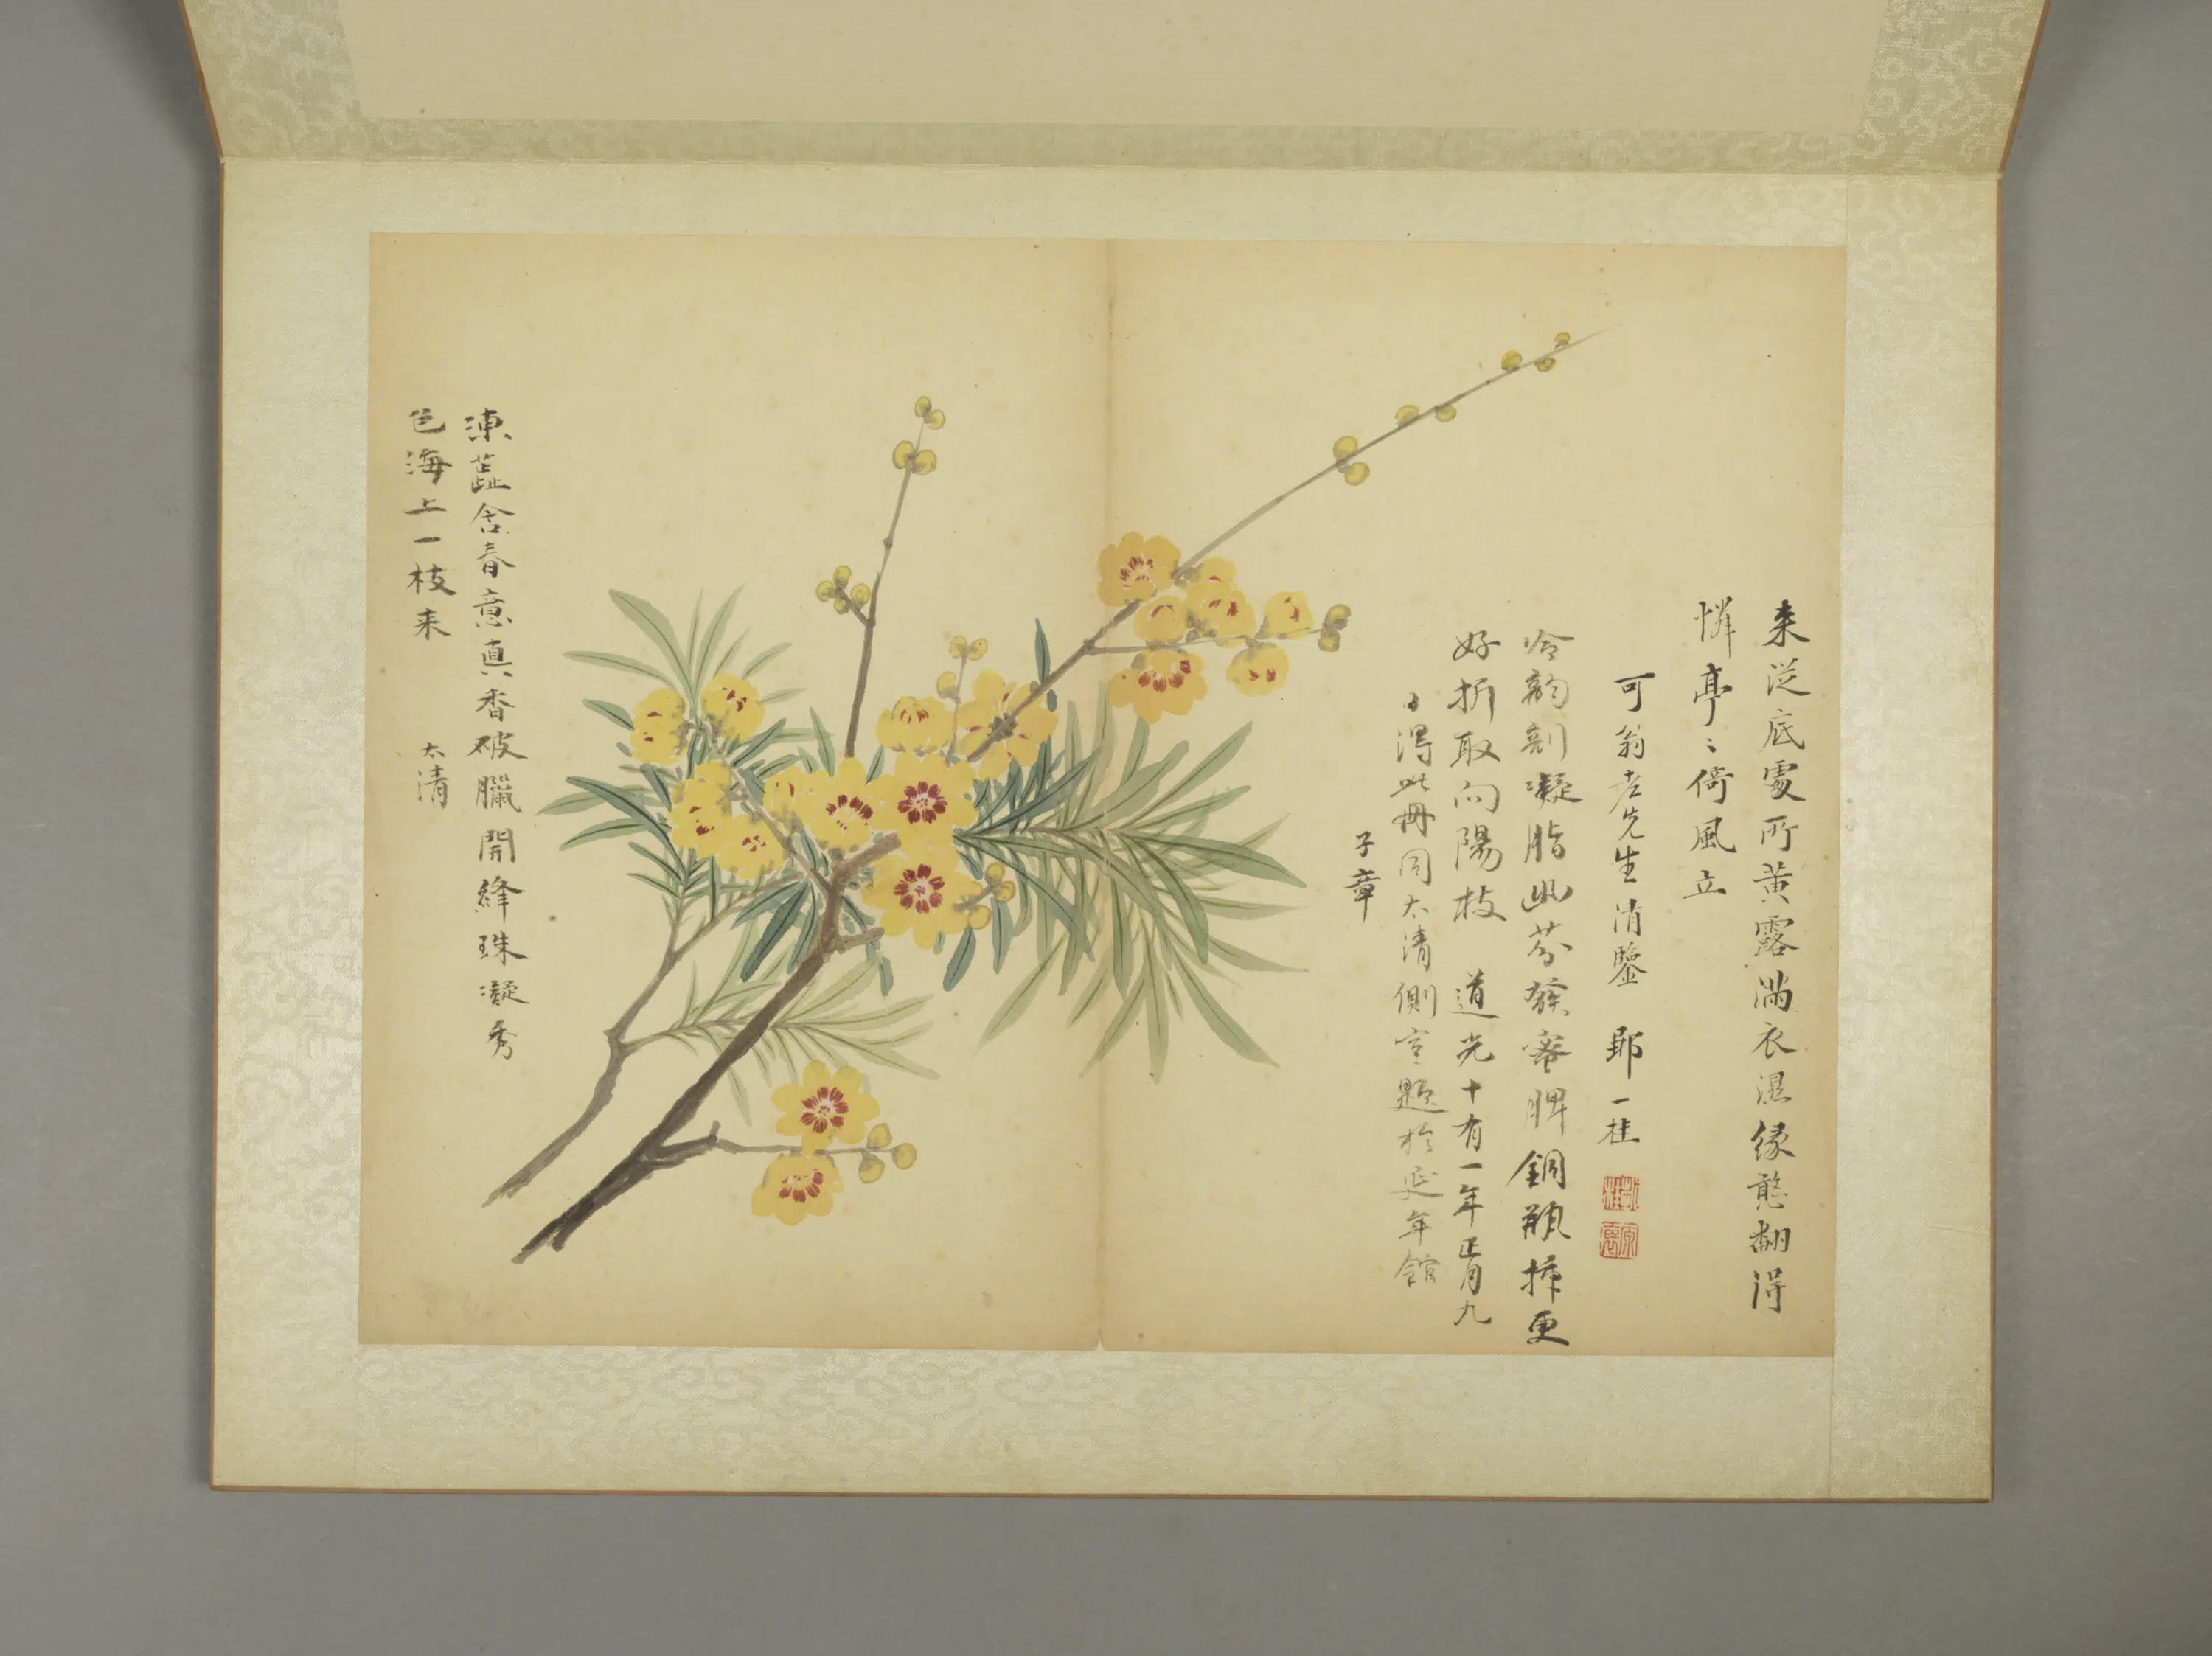 来從底處所黃露滿衣濕緣憨翻得
憐亭〻倚風立
可翁老先生清鑒 鄒一桂
冷韵剖凝脂幽芬發蜜脾銅瓶揷更
好折取向陽枝 道光十有一年正月九
日得此冊同太清側室題於延年館
子章
凍蕋含春意真香破臘開絳珠凝秀
色海上一枝来
太清